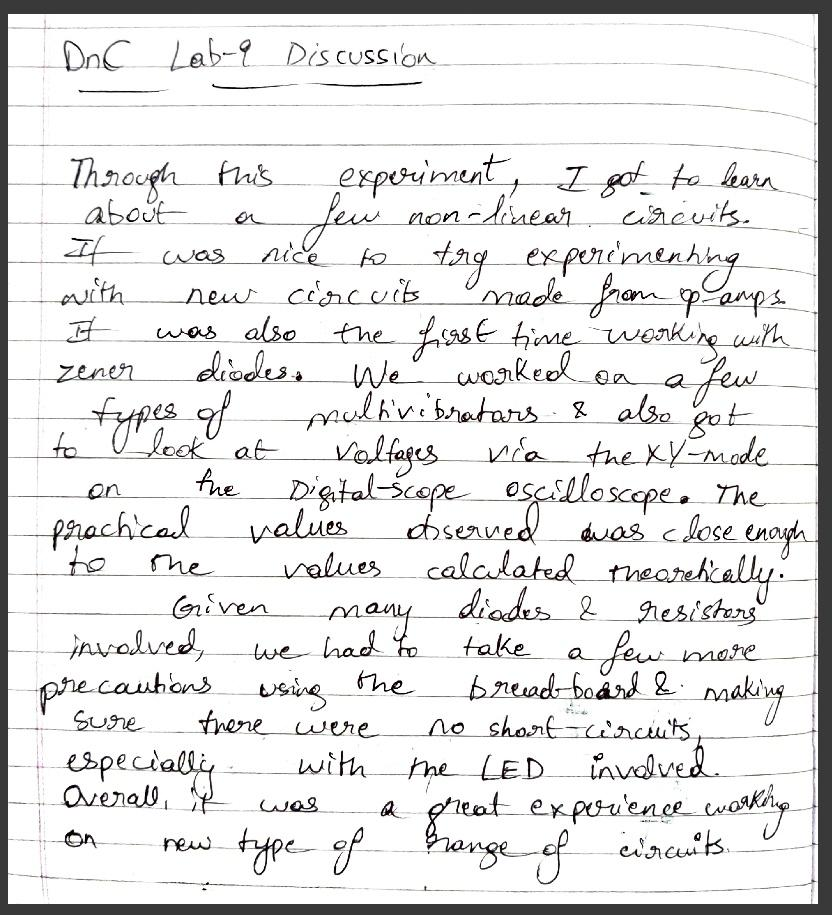 DnC Lab-9 Discussion
Through this experiment, I got to learn
about a few non-linear circuits.
It was nice to try experimenting
with new circuits made from op-amps.
It was also the first time working with
zener diodes. We worked on a few
types of multivibrators & also got
to look at voltages via the XY-mode
on the Digital-scope oscilloscope. The
practical values observed was close enough
to the values calculated theoretically.
Given many diodes & resistors
involved, we had to take a few more
precautions using the bread-board & making
sure there were no short-circuits,
especially with the LED involved.
Overall, it was a great experience working
on new type of range of circuits.